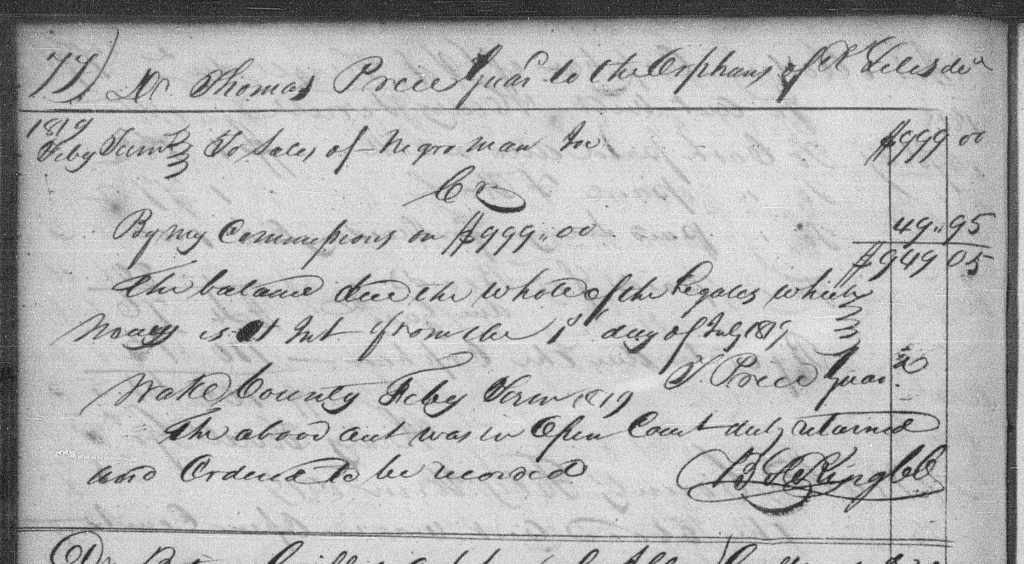 77) Dr Thomas Price Guar. to the Orphans of
1819
Feby Term To Sales of Negro man Joe $999 00
Cr
By my Commissions on $999..00 49..95
$949 05
The balance due the whole of the Legatees which
Money is at Int. from the 1st day of July 1819
T. Price Guar.
Wake County Feby Term 1819
The above acct was in Open Court duly returned
and Ordered to be recorded
B. S. King CC